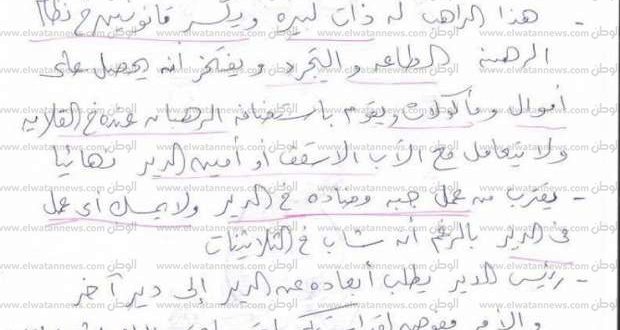 - هذا الراهب له ذات كبيرة ويكسر قانونين في نظام
الرهبنة الطاعه والتجرد ويفتخر أنه يحصل على
أموال ومأكولات ويقوم باستضافه الرهبان عنده في القلايه
ولا يتعامل مع الأب الاسقف أو أمين الدير نهائيا
- يقترب من عمل جبه ومضاده في الدير ولا يمسك أى عمل
فى الدير بالرغم أنه شاب في الثلاثينات
- رئيس الدير يطلب أبعاده عن الدير إلى دير آخر
والأمر مفوض
الوطن www.elwatannews.com